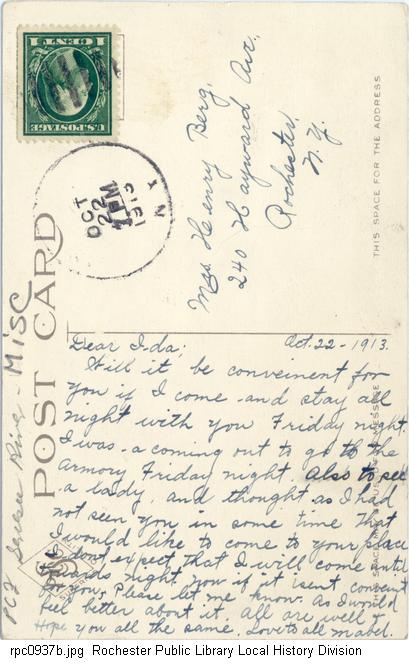 1 CENT 1
U.S. POSTAGE
OCT
22
1 PM
1913
N Y
Mrs Henry Berg,
240 Hayward Ave.
Rochester,
N. Y.
THIS SPACE FOR THE ADDRESS
POST CARD
PCZ Genesee River - Misc
Oct. 22 - 1913.
Dear Ida;
Will it be conveinent for
you if I come and stay all
night with you Friday night.
I was a coming out to go to the
armory Friday night. Also to see
a lady, and thought as I had
not seen you in some time that
I would like to come to your place
I don't expect that I will come until
night if it isent convent
for you. Please let me know. As I would
feel better about it. All are well &
Hope you all the same. Love to all Mabel.
rpc0937b.jpg Rochester Public Library Local History Division